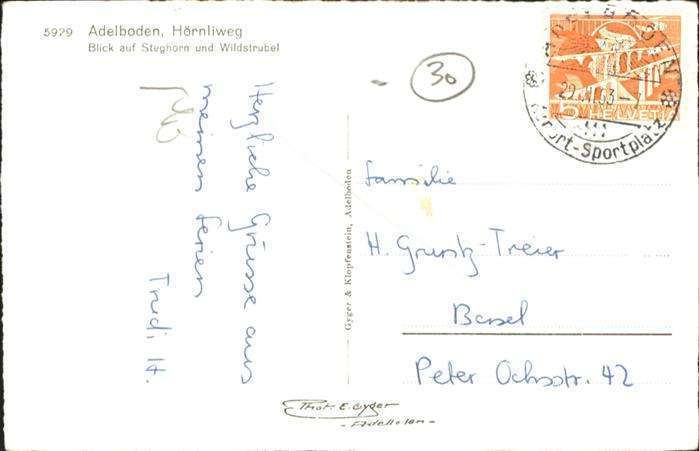 5929 Adelboden, Hörnliweg
Blick auf Steghorn und Wildstrubel
30
ADELBODEN
HELVETIA
5
Kurort-Sportplatz
Herzliche Grüsse aus
meinen Ferien
Trudi H.
Gyger & Klopfenstein, Adelboden
Familie
H. Gruntz-Treier
Basel
Peter Ochsstr. 42
Phot. E. Gyger
- Adelboden -